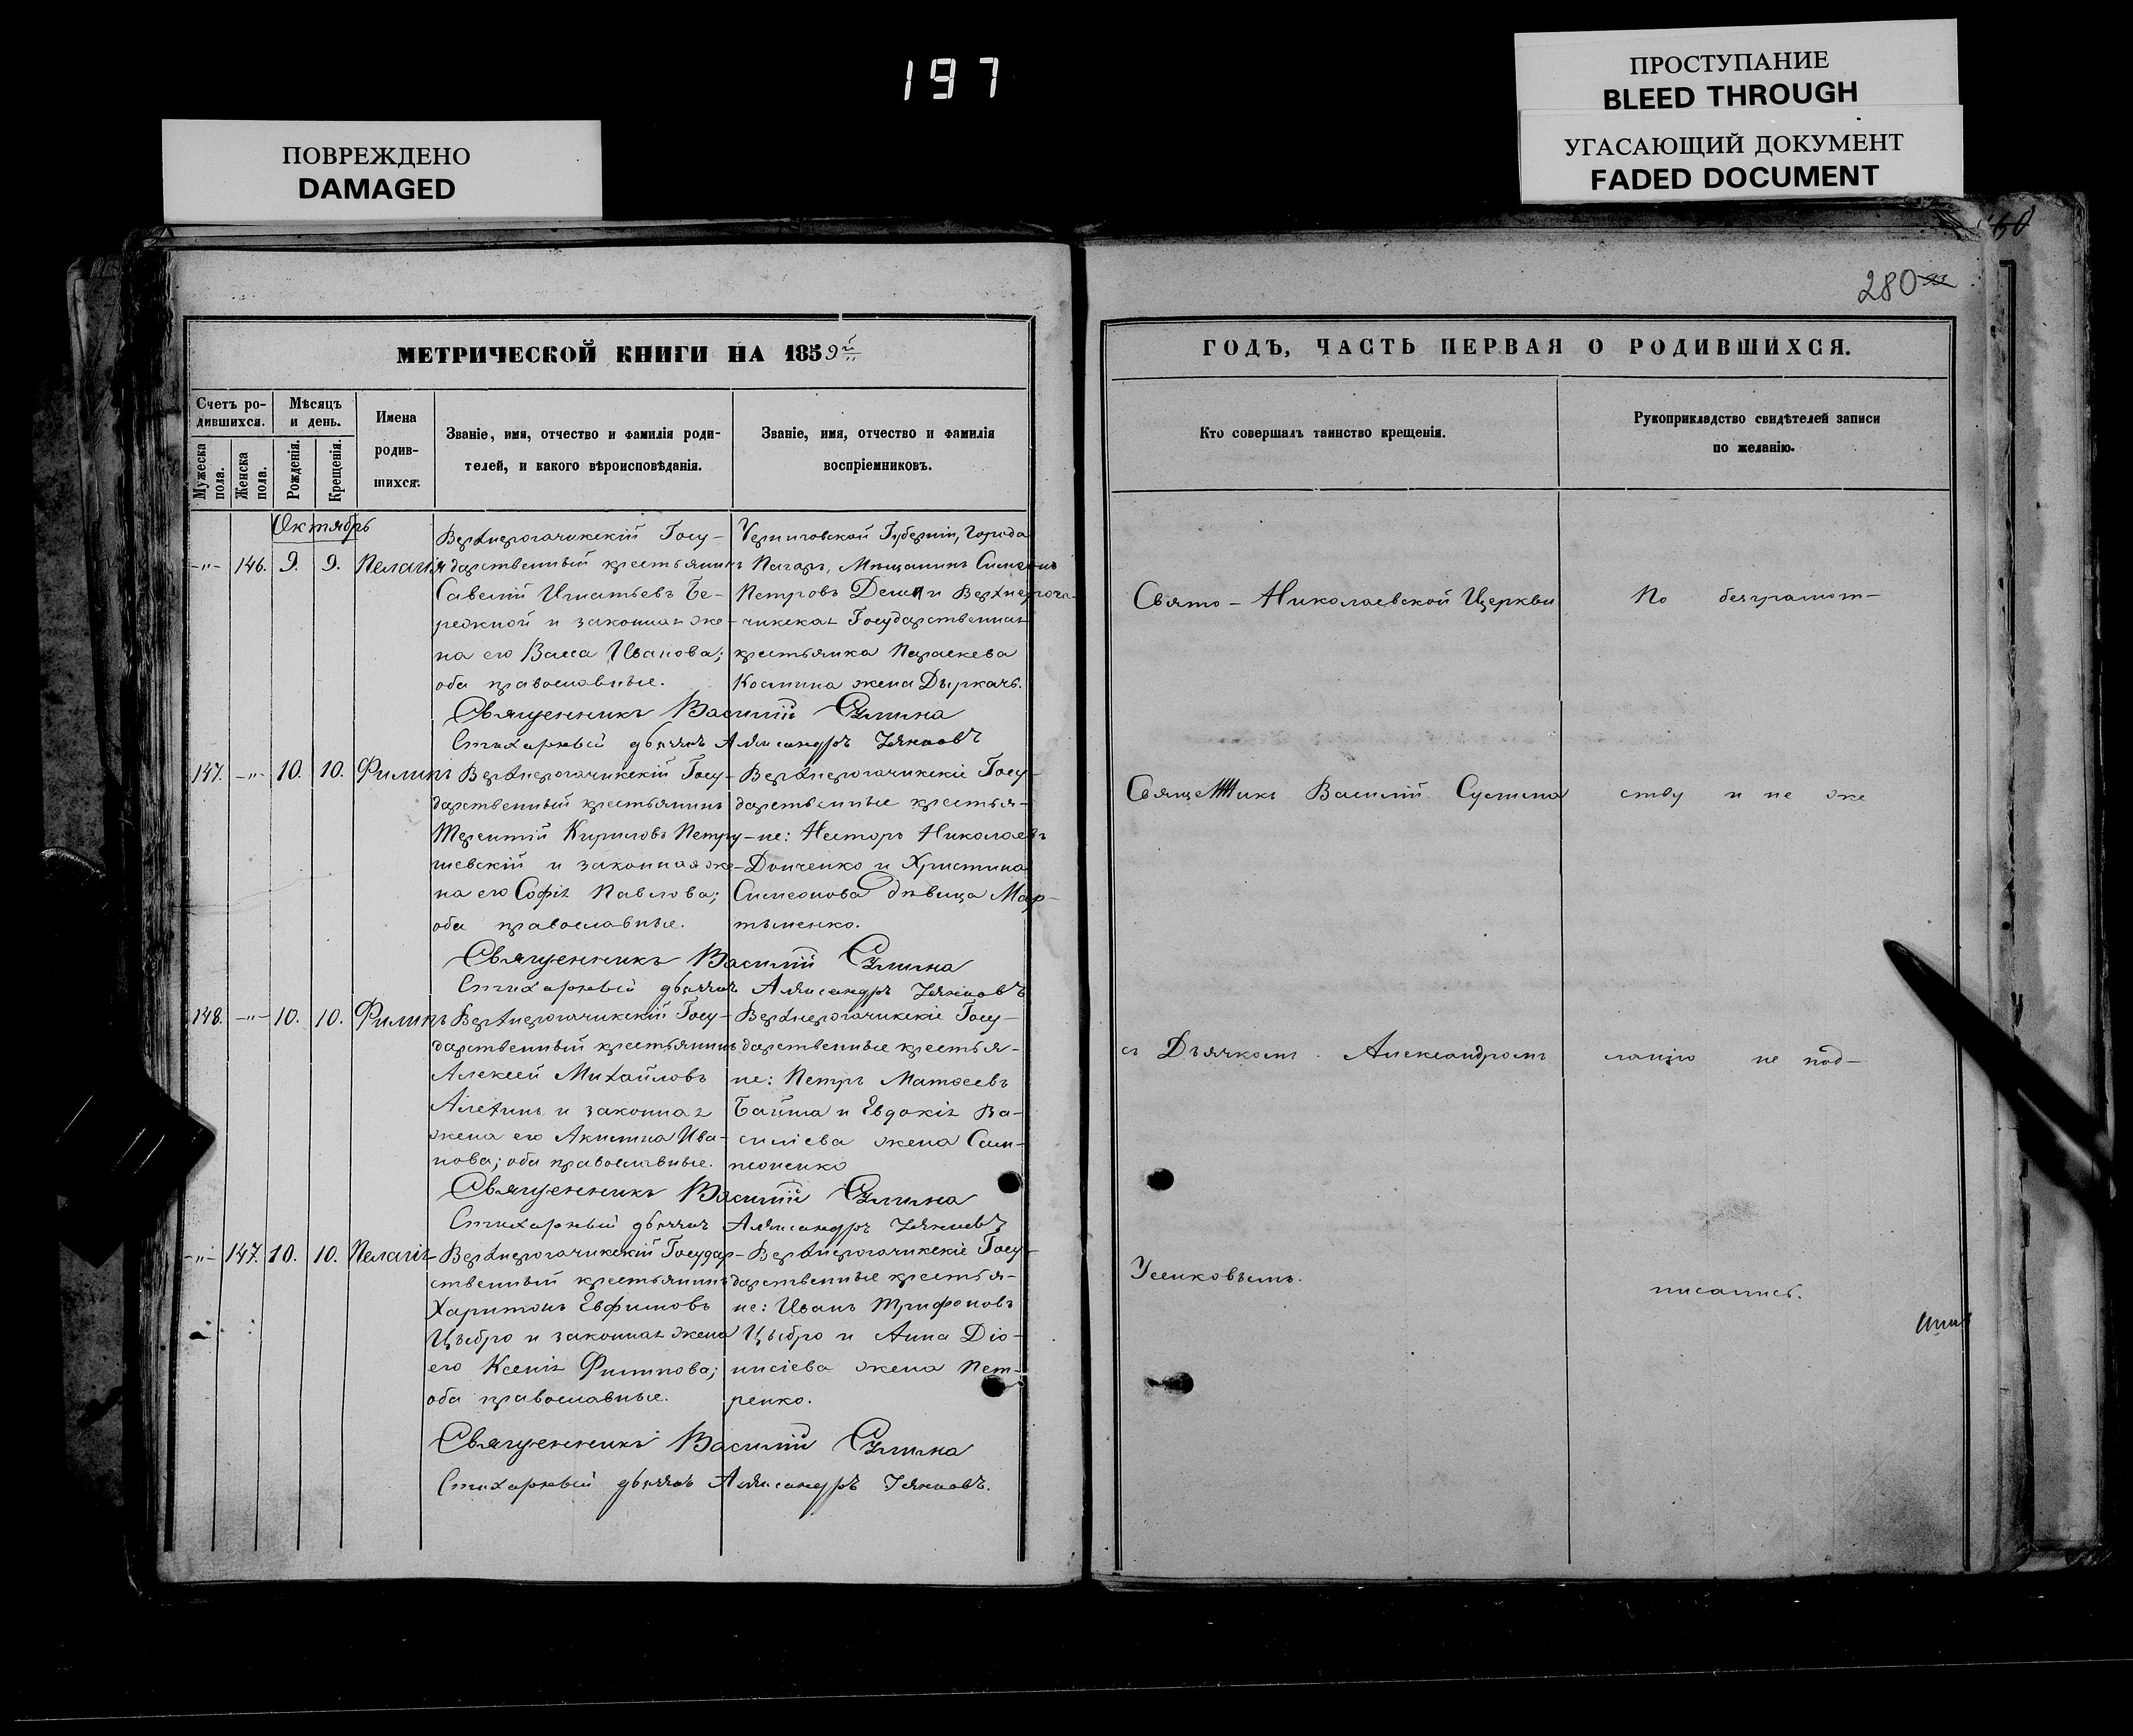 197
ПРОСТУПАНИЕ
BLEED THROUGH
УГАСАЮЩИЙ ДОКУМЕНТ
FADED DOCUMENT
ПОВРЕЖДЕНО
DAMAGED
60
280
МЕТРИЧЕСКОЙ КНИГИ НА 1859й
Счетъ ро-
дившихся.
Мужеска пола.
Женска пола.
Мѣсяцъ
и день.
Рожденія.
Крещенія.
Имена
родив-
шихся.
Званіе, имя, отчество и фамилія роди-
телей, и какого вѣроисповѣданія.
Званіе, имя, отчество и фамилія
воспріемниковъ.
Октябрь
-"- 146. 9. 9. Пелагія
Верхнерогачикскій Госу-
дарственный крестьянинъ
Савелій Игнатьевъ Бе-
режной и законная же-
на его Васса Иванова;
оба православные.
Черниговской Губерніи, Города
Погаръ, Мѣщанинъ Симеонъ
Петровъ и Верхнерога-
чикская Государственная
крестьянка Параскева
Космина жена Дыркачъ.
Священникъ Василій Сулима
Стихарный дьячокъ Александръ
147. -"- 10. 10. Филипъ
Верхнерогачикскій Госу-
дарственный крестьянинъ
Терентій Кириловъ Петру-
шевскій и законная же-
на его Софія Павлова;
оба православные.
Верхнерогачикскіе Госу-
дарственные крестья-
не: Несторъ Николаевъ
Донченко и Христина
Симеонова дѣвица Мар-
тыненко.
Священникъ Василій Сулима
Стихарный дьячокъ Александръ
148. -"- 10. 10. Филипъ
Верхнерогачикскій Госу-
дарственный крестьянинъ
Алексей Михайловъ
Алехинъ и законная
жена его Акилина Ива-
нова; оба православные.
Верхнерогачикскіе Госу-
дарственные крестья-
не: Петръ Матѳеевъ
и Евдокія Ва-
силіева жена Сам-
Священникъ Василій Сулима
Стихарный дьячокъ Александръ
-"- 147. 10. 10. Пелагія
Верхнерогачикскій Государ-
ственный крестьянинъ
Харитонъ Евфимовъ
Цыбро и законная жена
его Ксенія Филипова;
оба православные.
Верхнерогачикскіе Госу-
дарственные крестья-
не: Иванъ Трифоновъ
Цыбро и Анна Діо-
нисіева жена Пет-
ренко.
Священникъ Василій Сулима
Стихарный дьячокъ Александръ
ГОДЪ, ЧАСТЬ ПЕРВАЯ О РОДИВШИХСЯ.
Кто совершалъ таинство крещенія.
Рукоприкладство свидѣтелей записи
по желанію.
Свято-Николаевской Церкви
Священникъ Василій Сулима
съ Дьячкомъ Александромъ
По безграмот-
ству и не же
ланію не под-
писались.